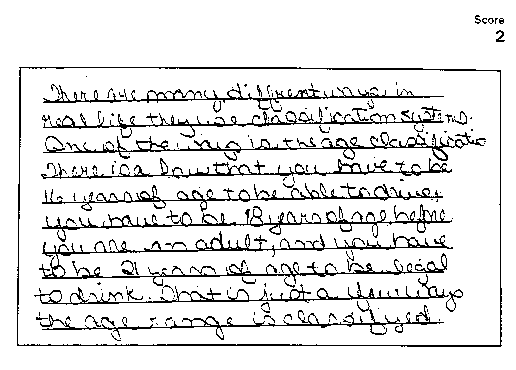 Score
2
There are many different ways in
real life they use classification systems.
One of the ways is the age classificatio
There is a law that you have to be
16 years of age to be able to drive,
you have to be 18 years of age before
you are an adult, and you have
to be 21 years of age to be legal
to drink. That is just a few ways
the age range is classifyed.